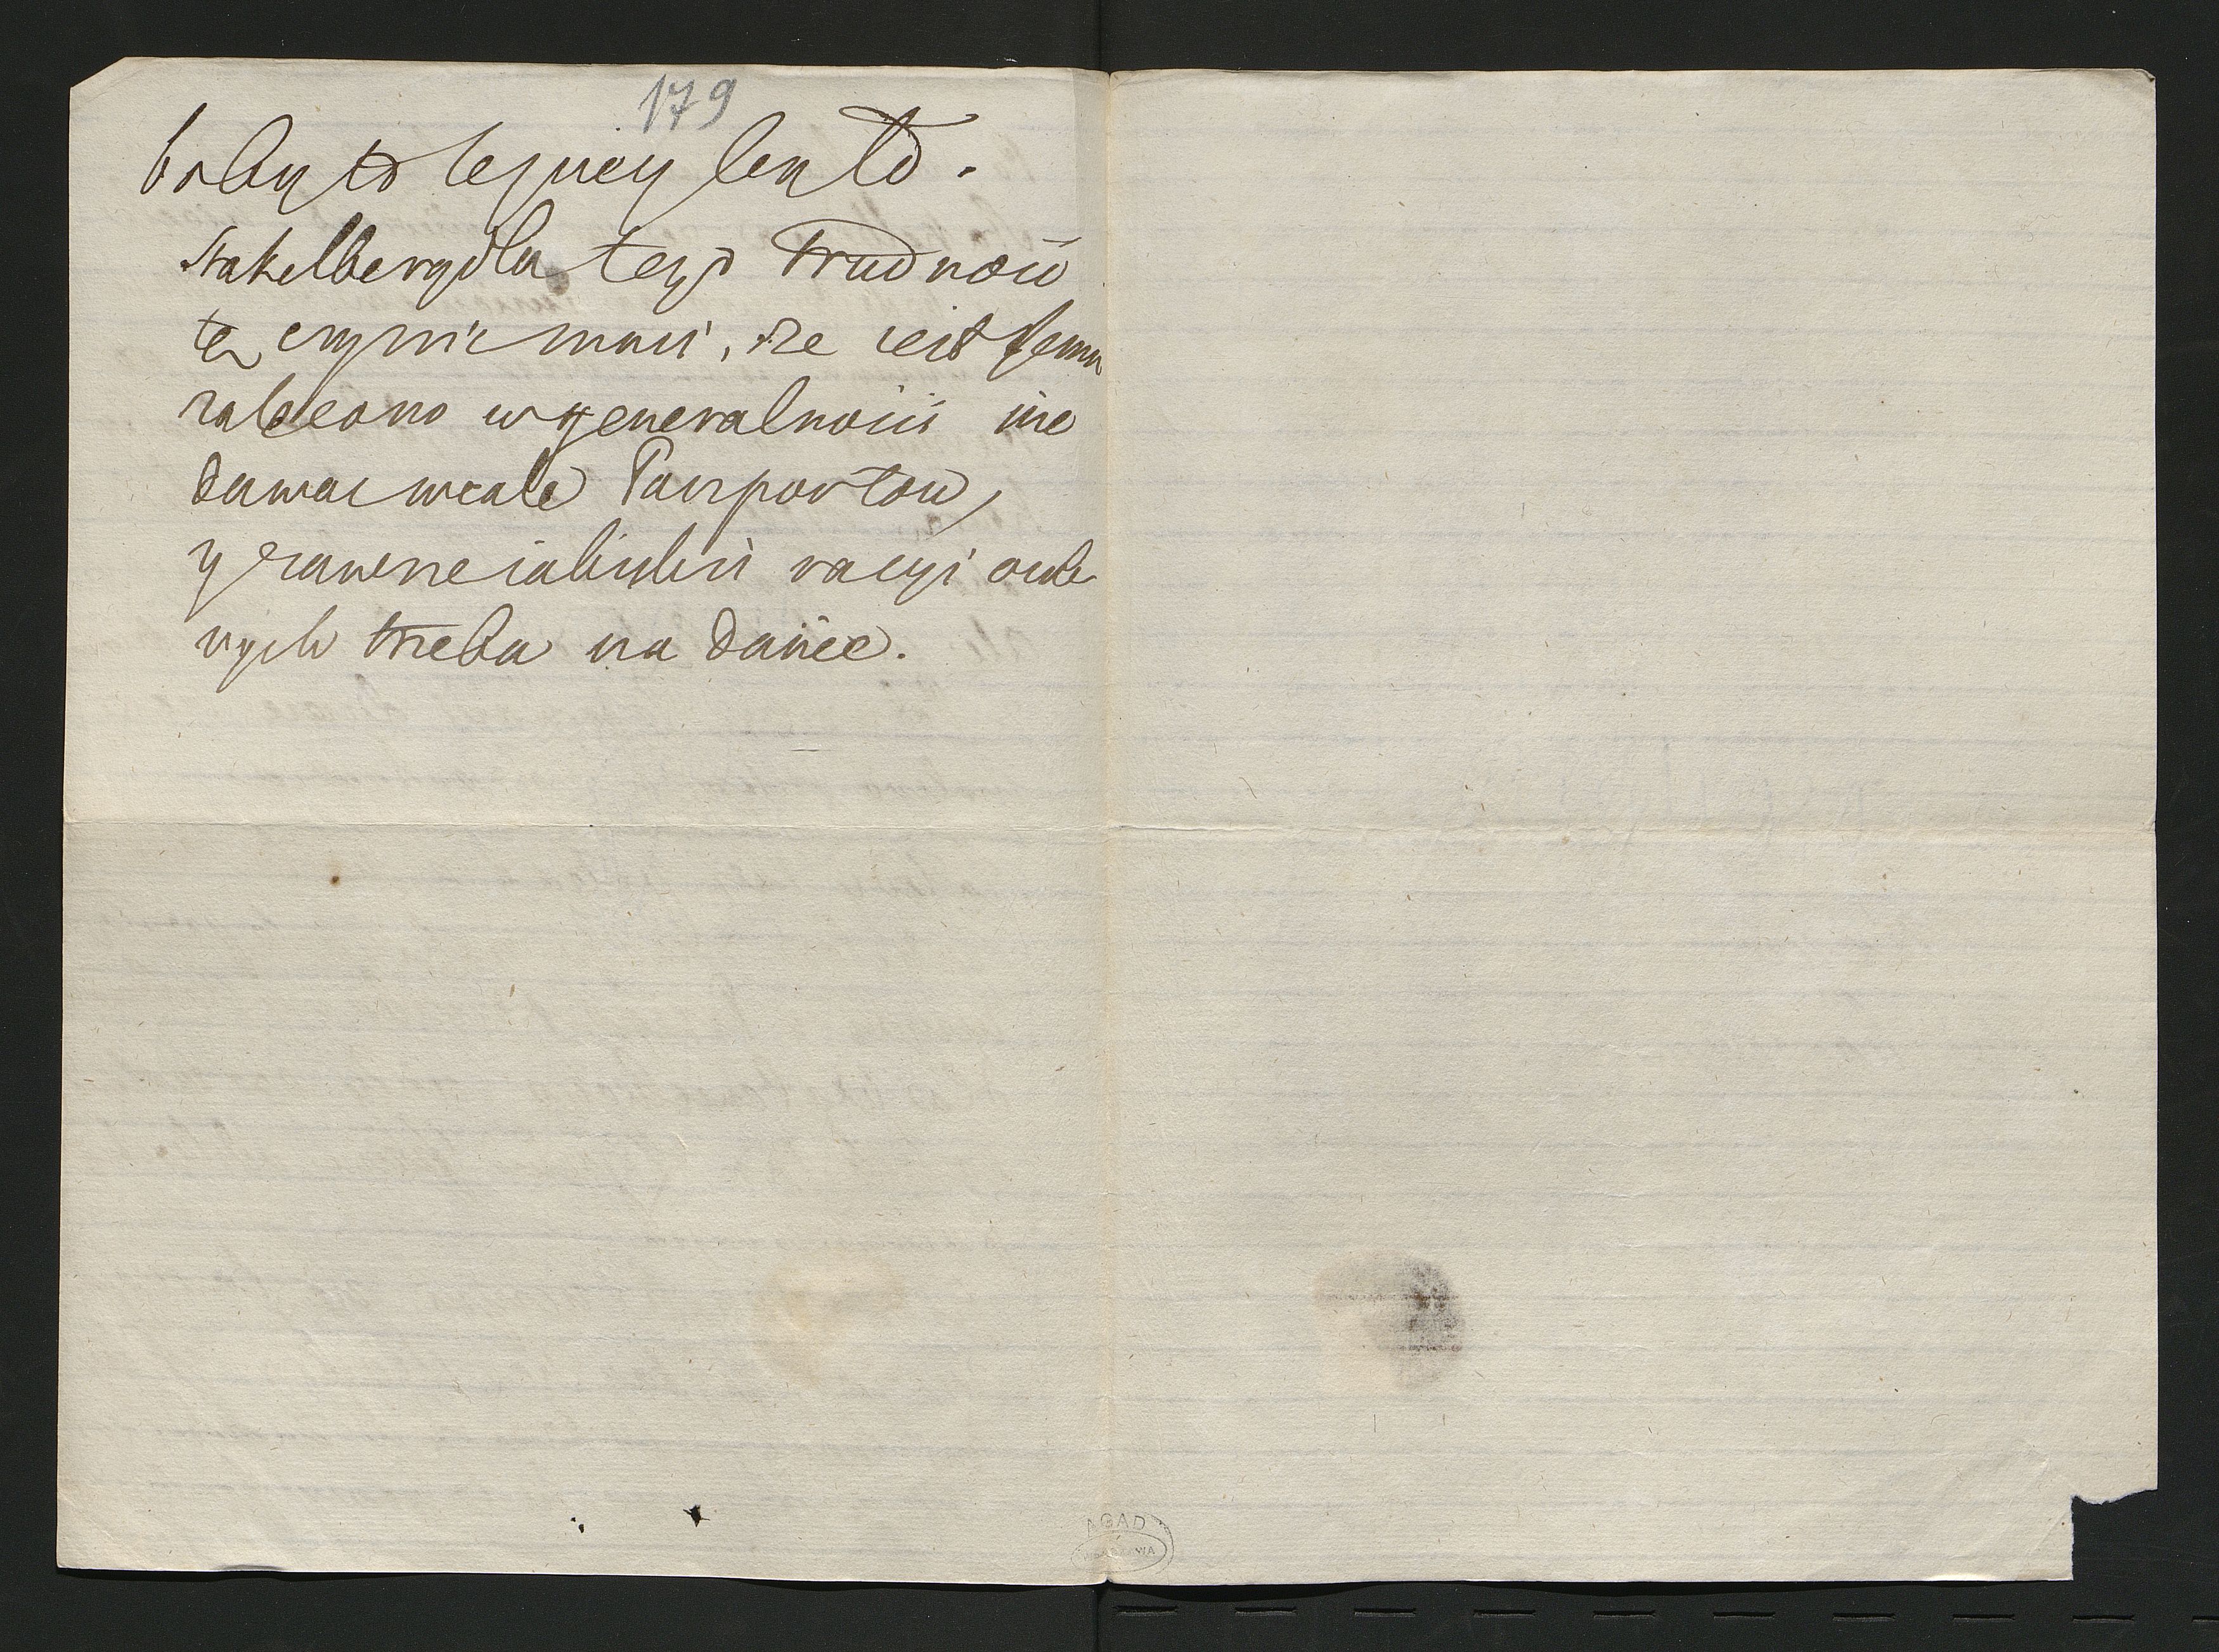 179
boby to lepiey było.
Stakelberg dla tego trudności
te czynić musi, że iest jemu
zalecono w generalności nie
dawac wcale Passportow,
y zawsze iakichsis racyi osob
nych trzeba na danie.
AGAD
WARSZAWA